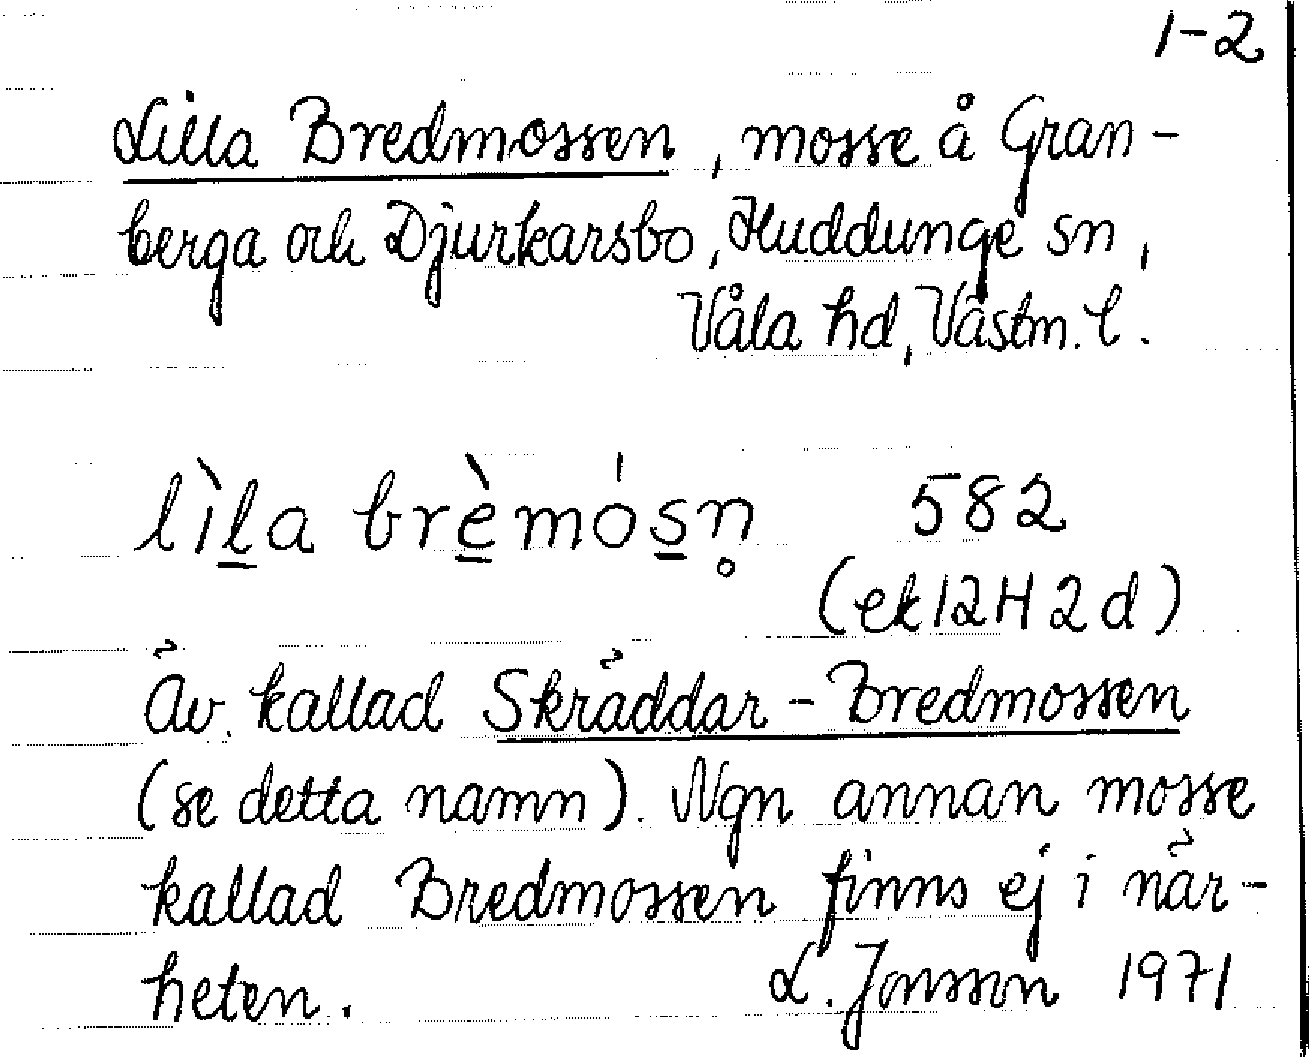 1-2
Lilla Bredmossen, mosse å Gran-
berga och Djurkarsbo, Huddunge sn,
Våla hd, Västm. l.
lìl̲a brè̲mós̲n̥ 582
(ek 12H 2d)
Äv. kallad Skräddar-Bredmossen
(se detta namn). Ngn annan mosse
kallad Bredmossen finns ej i när-
heten. L. Jonsson 1971